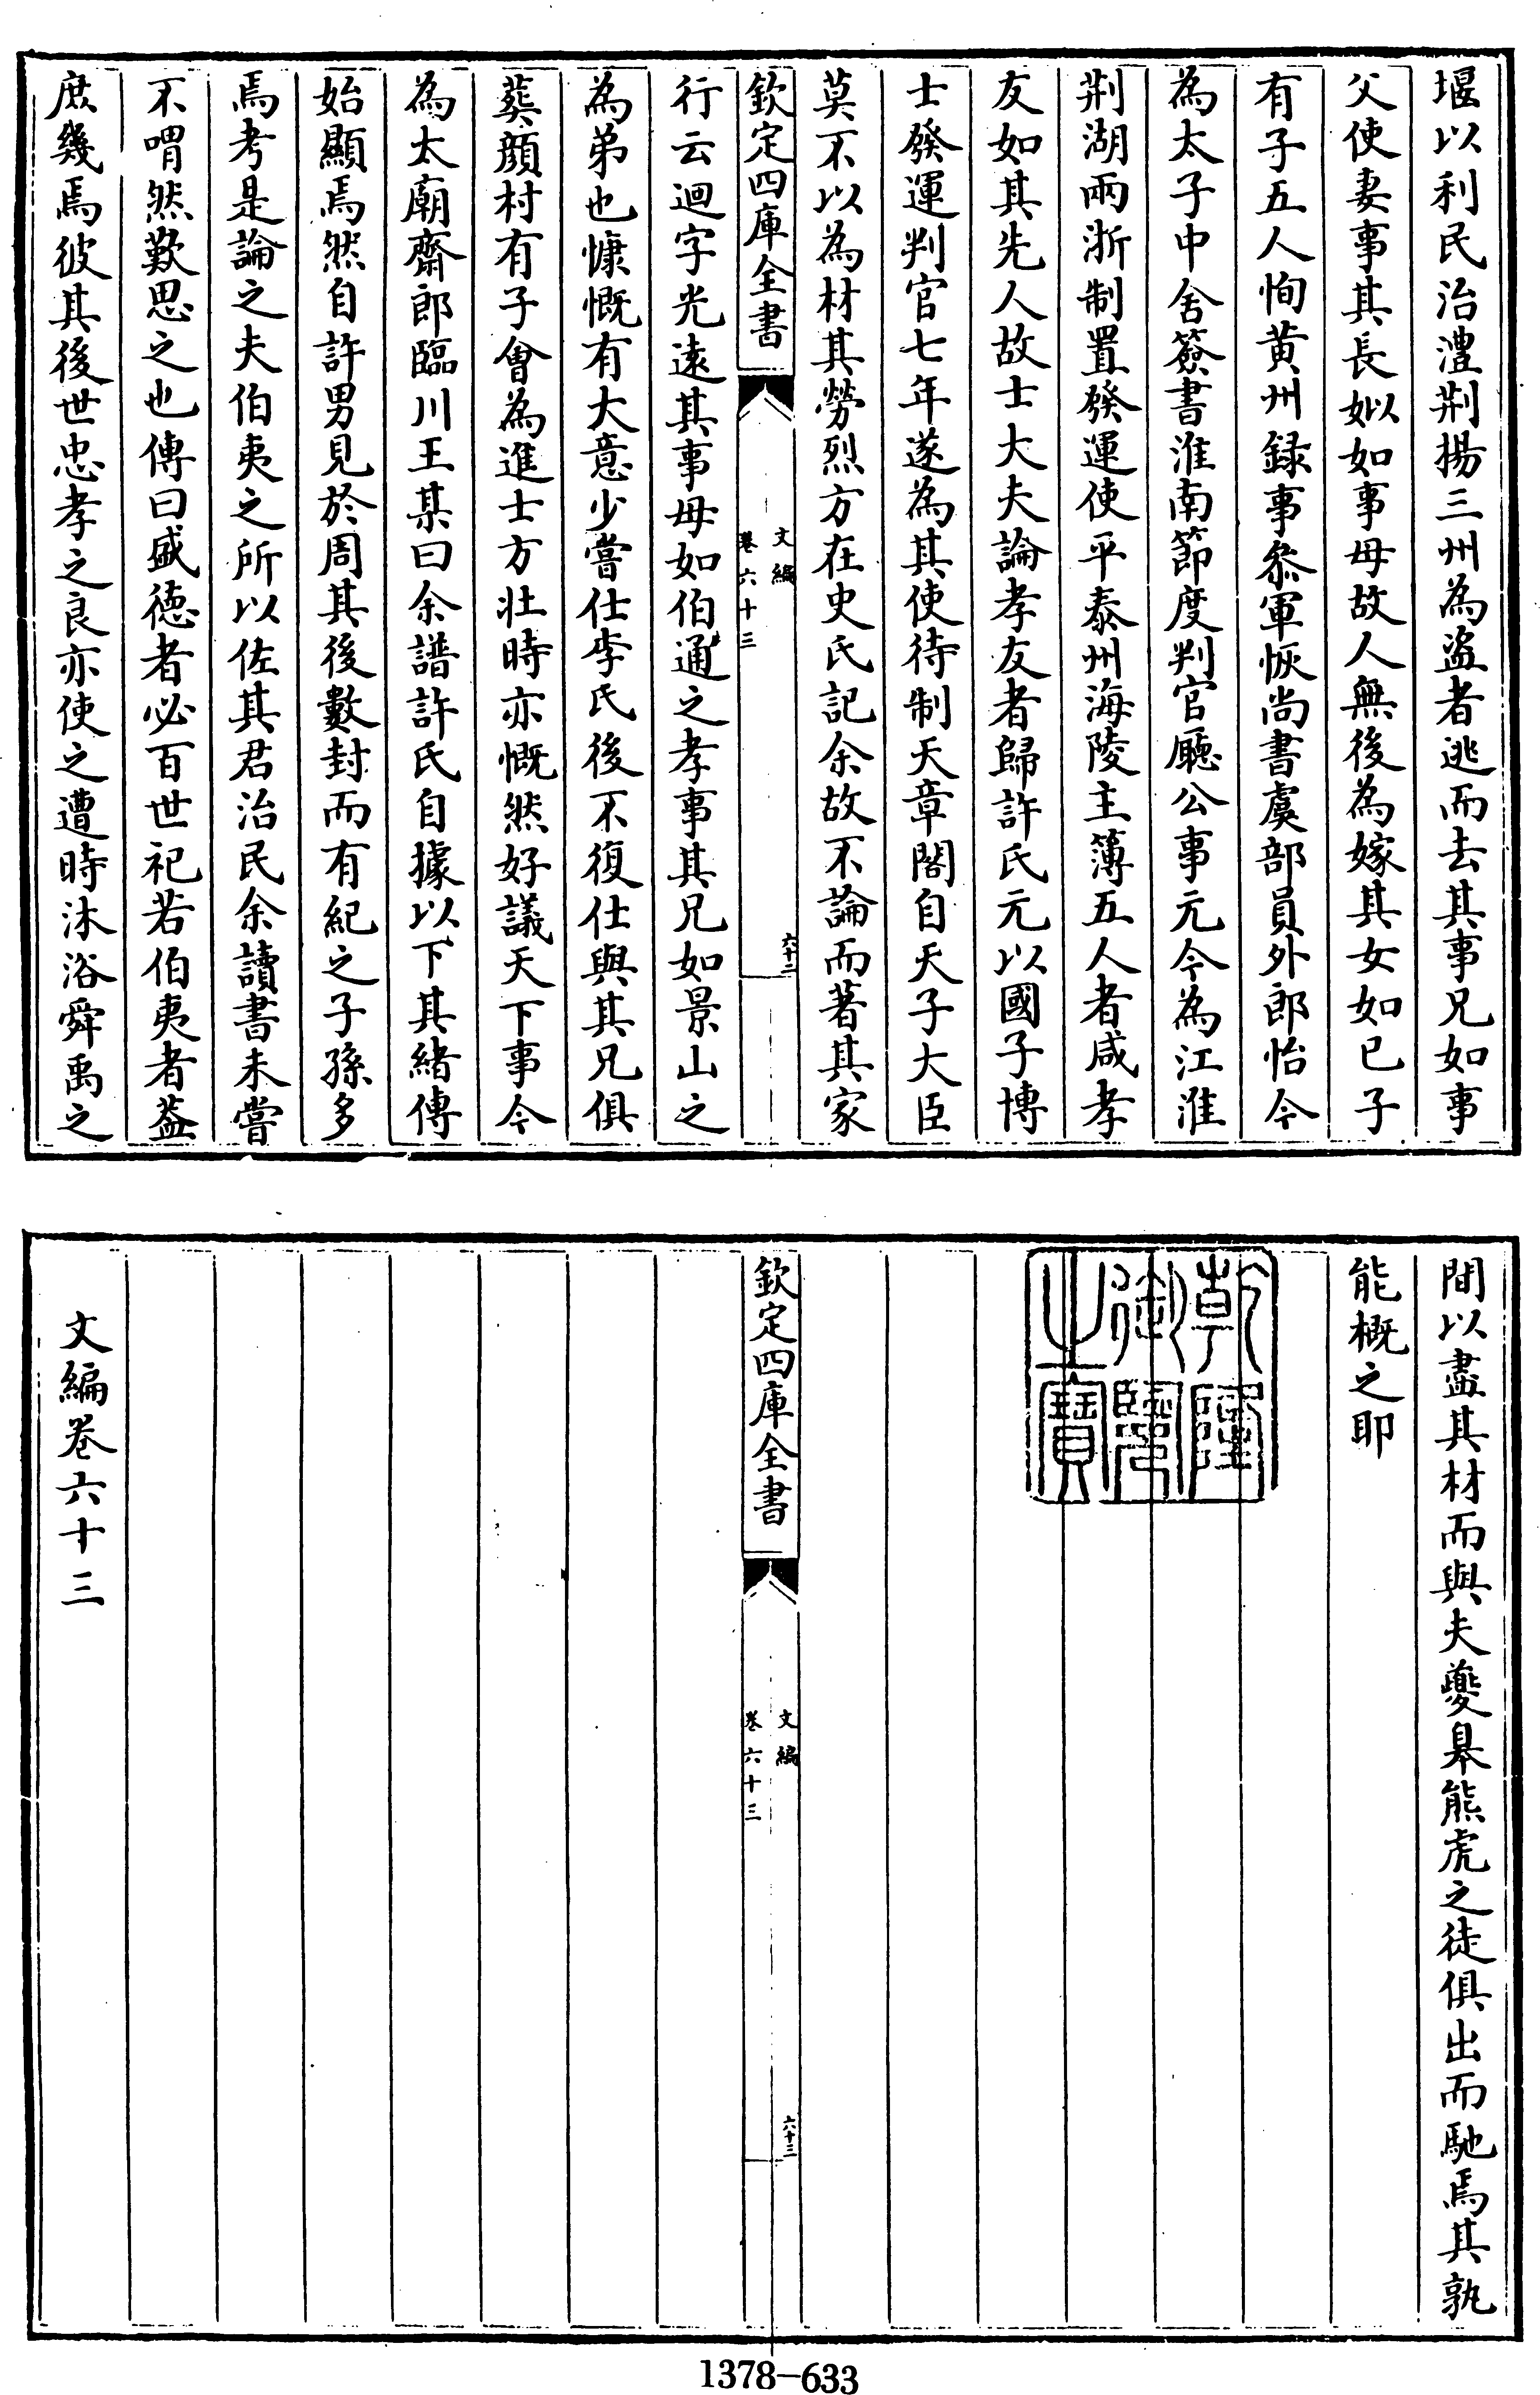 堰以利民治澧荆揚三州為盗者逃而去其事兄如事
父使妻事其長姒如事母故人無後為嫁其女如已子
有子五人恂黄州録事叅軍恢尚書虞部員外郎怡今
為太子中舍簽書淮南節度判官廳公事元今為江淮
荆湖兩浙制置發運使平泰州海陵主簿五人者咸孝
友如其先人故士大夫論孝友者歸許氏元以國子博
士發運判官七年遂為其使待制天章閣自天子大臣
莫不以為材其勞烈方在史氏記余故不論而著其家
欽定四庫全書
文編
卷六十三
六十二
行云迴字光遠其事母如伯通之孝事其兄如景山之
為弟也慷慨有大意少嘗仕李氏後不復仕與其兄俱
葬顔村有子會為進士方壯時亦慨然好議天下事今
為太廟齋郎臨川王某曰余譜許氏自據以下其緒傳
始顯焉然自許男見於周其後數封而有紀之子孫多
焉考是論之夫伯夷之所以佐其君治民余讀書未嘗
不喟然歎思之也傳曰盛徳者必百世祀若伯夷者葢
庶幾焉彼其後世忠孝之良亦使之遭時沐浴舜禹之
間以盡其材而與夫夔臯熊虎之徒俱出而馳焉其孰
能概之耶
乾隆
御覽
之寶
欽定四庫全書
文編
卷六十三
六十三
文編卷六十三
1378-633